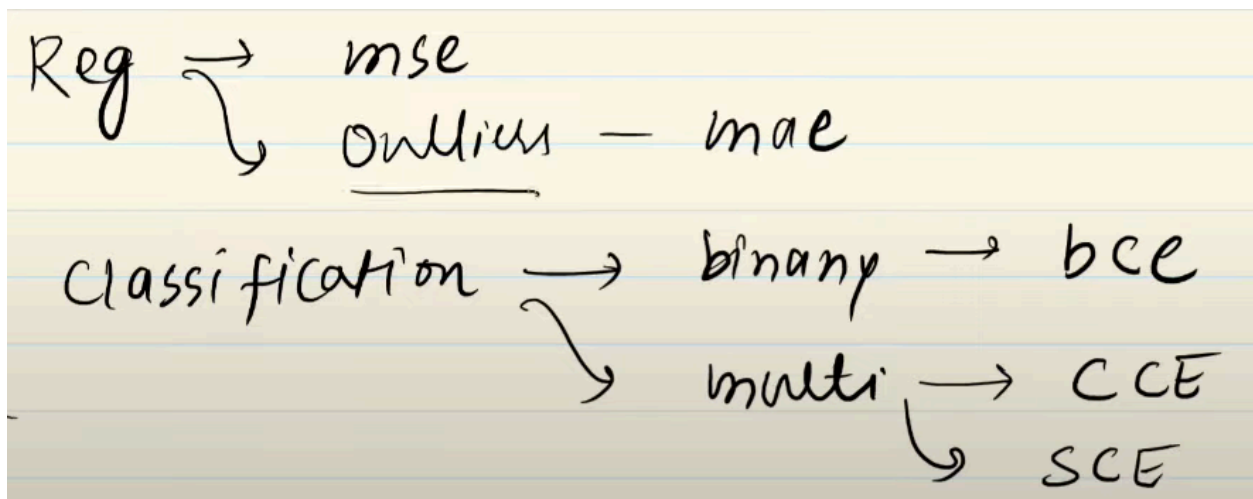 Reg → mse
outliers — mae
Classification → binary → bce
multi → CCE
SCE